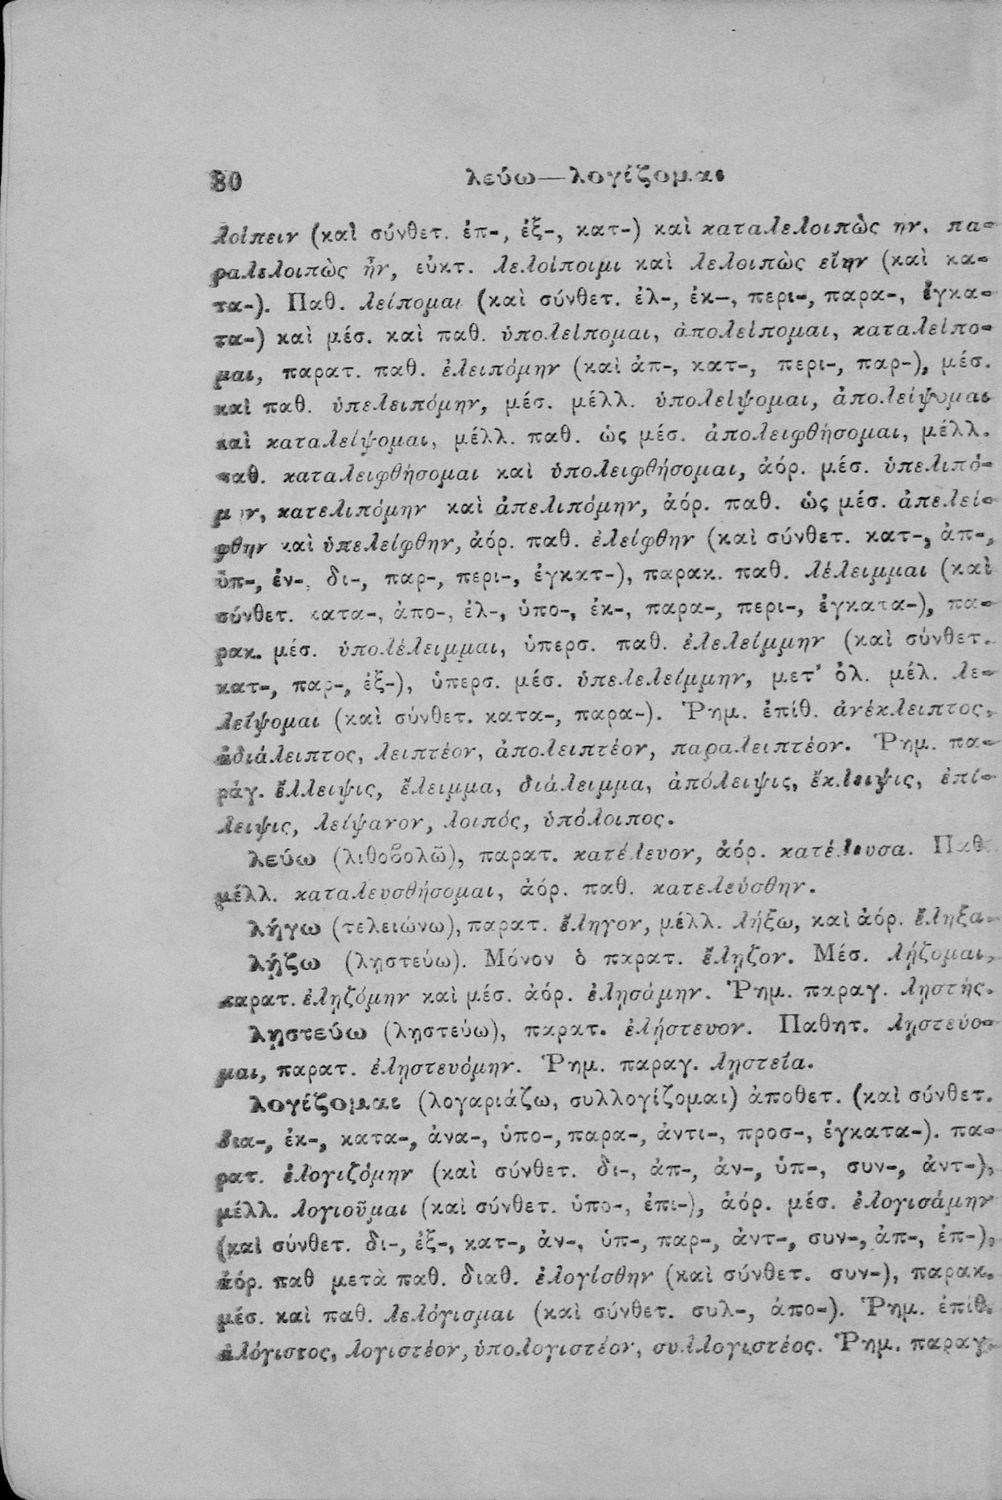 80 λεύω—λογίζομαι
λοίπειν (καὶ σύνθετ. ἐπ-, ἐξ-, κατ-) καὶ καταλελοιπὼς ην, πα-
ραλελοιπὼς ἦν, εὐκτ. λελοίποιμι καὶ λελοιπὼς εἴην (καὶ κα-
τα-). Παθ. λείπομαι (καὶ σύνθετ. ἐλ-, ἐκ-, περι-, παρα-, ἐγκα-
τα-) καὶ μέσ. καὶ παθ. ὑπολείπομαι, ἀπολείπομαι, καταλείπο-
μαι, παρατ. παθ. ἐλειπόμην (καὶ ἀπ-, κατ-, περι-, παρ-), μέσ.
καὶ παθ. ὑπελειπόμην, μέσ. μέλλ. ὑπολείψομαι, ἀπολείψομαι
καὶ καταλείψομαι, μέλλ. παθ. ὡς μέσ. ἀπολειφθήσομαι, μέλλ.
παθ. καταλειφθήσομαι καὶ ὑπολειφθήσομαι, ἀόρ. μέσ. ὑπελιπό-
μην, κατελιπόμην καὶ ἀπελιπόμην, ἀόρ. παθ. ὡς μέσ. ἀπελεί-
φθην καὶ ὑπελείφθην, ἀόρ. παθ. ἐλείφθην (καὶ σύνθετ. κατ-, ἀπ-,
ὑπ-, ἐν-, δι-, παρ-, περι-, ἐγκατ-), παρακ. παθ. λέλειμμαι (καὶ
σύνθετ. κατα-, ἀπο-, ἐλ-, ὑπο-, ἐκ-, παρα-, περι-, ἐγκατα-), πα-
ρακ. μέσ. ὑπολέλειμμαι, ὑπερσ. παθ. ἐλελείμμην (καὶ σύνθετ.
κατ-, παρ-, ἐξ-), ὑπερσ. μέσ. ὑπελελείμμην, μετ' ὀλ. μέλ. λε-
λείψομαι (καὶ σύνθετ. κατα-, παρα-). Ῥημ. ἐπίθ. ἀνέκλειπτος,
ἀδιάλειπτος, λειπτέον, ἀπολειπτέον, παραλειπτέον. Ῥημ. πα-
ράγ. ἔλλειψις, ἔλειμμα, διάλειμμα, ἀπόλειψις, ἔκλειψις, ἐπί-
λειψις, λείψανον, λοιπός, ὑπόλοιπος.
λεύω (λιθοβολῶ), παρατ. κατέλευον, ἀόρ. κατέλευσα. Παθ.
μέλλ. καταλευσθήσομαι, ἀόρ. παθ. κατελεύσθην.
λήγω (τελειώνω), παρατ. ἔληγον, μέλλ. λήξω, καὶ ἀόρ. ἔληξα.
λῄζω (λῃστεύω). Μόνον ὁ παρατ. ἔληζον. Μέσ. λῄζομαι,
παρατ. ἐληζόμην καὶ μέσ. ἀόρ. ἐλησάμην. Ῥημ. παραγ. λῃστής.
λῃστεύω (λῃστεύω), παρατ. ἐλήστευον. Παθητ. λῃστεύο-
μαι, παρατ. ἐλῃστευόμην. Ῥημ. παραγ. λῃστεία.
λογίζομαι (λογαριάζω, συλλογίζομαι) ἀποθετ. (καὶ σύνθετ.
δια-, ἐκ-, κατα-, ἀνα-, ὑπο-, παρα-, ἀντι-, προσ-, ἐγκατα-). πα-
ρατ. ἐλογιζόμην (καὶ σύνθετ. δι-, ἀπ-, ἀν-, ὑπ-, συν-, ἀντ-),
μέλλ. λογιοῦμαι (καὶ σύνθετ. ὑπο-, ἐπι-), ἀόρ. μέσ. ἐλογισάμην
(καὶ σύνθετ. δι-, ἐξ-, κατ-, ἀν-, ὑπ-, παρ-, ἀντ-, συν-, ἀπ-, ἐπ-),
ἀόρ. παθ μετὰ παθ. διαθ. ἐλογίσθην (καὶ σύνθετ. συν-), παρακ.
μέσ. καὶ παθ. λελόγισμαι (καὶ σύνθετ. συλ-, ἀπο-). Ῥημ. ἐπίθ.
ἀλόγιστος, λογιστέον, ὑπολογιστέον, συλλογιστέος. Ῥημ. παραγ.